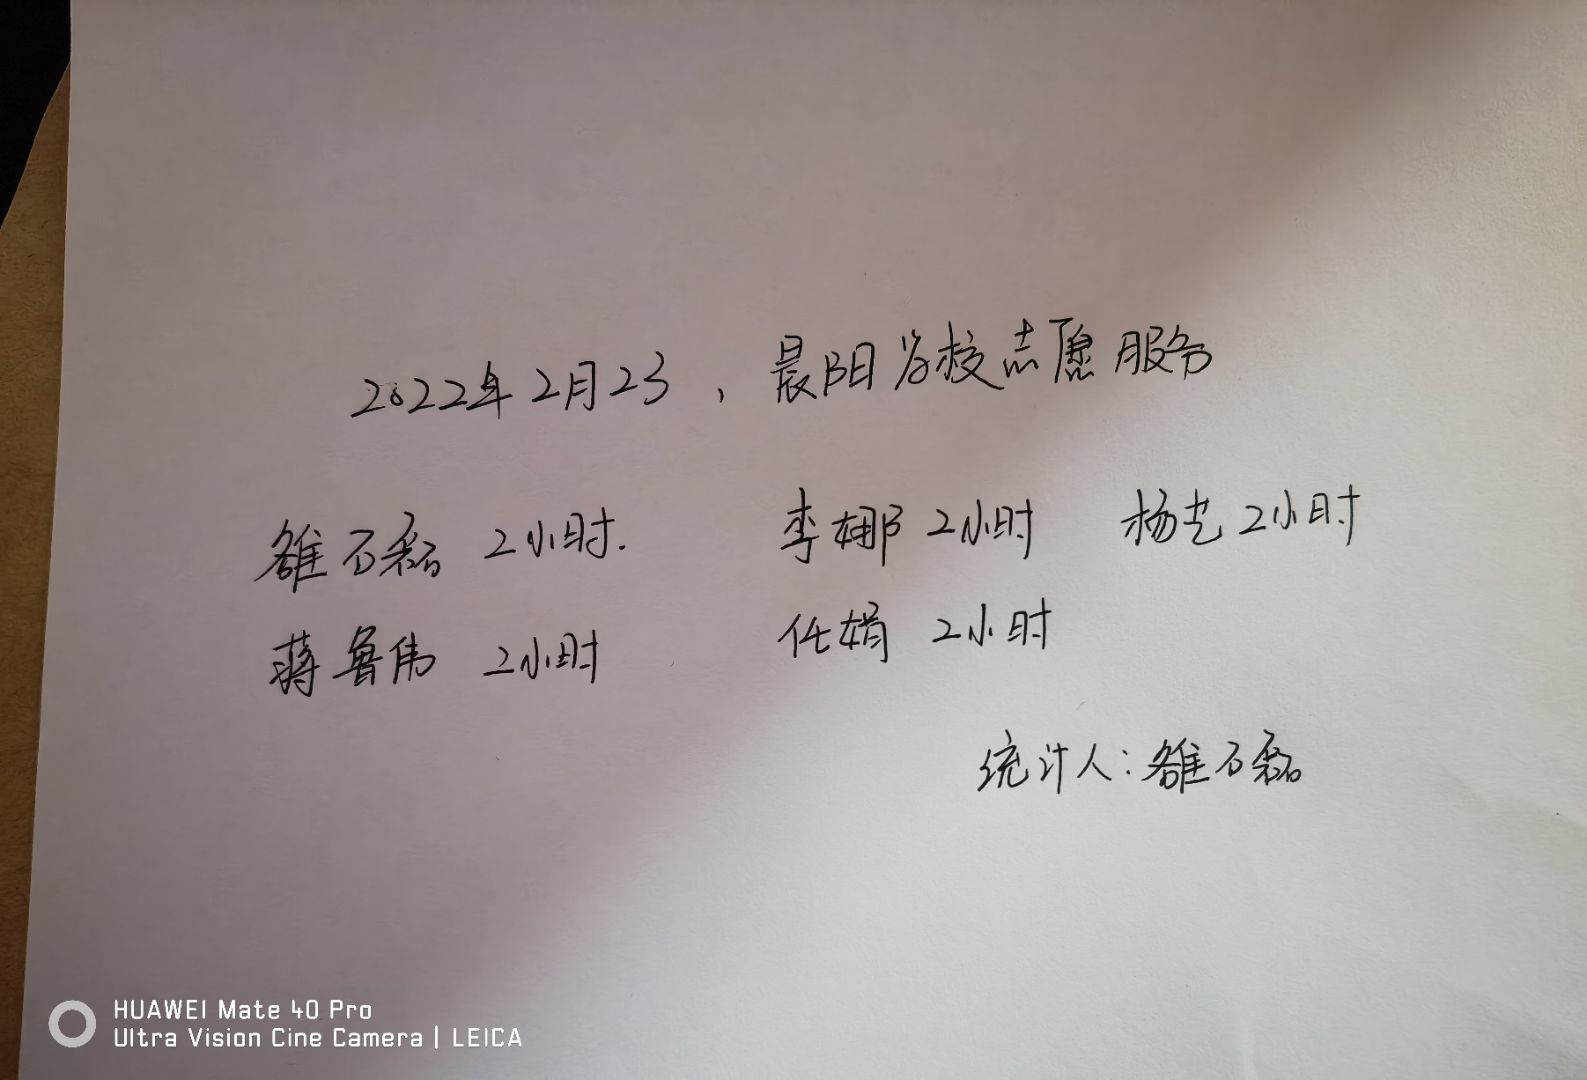 2022年2月23，晨阳学校志愿服务
雒石磊 2小时. 李娜 2小时 杨艺 2小时
蒋鲁伟 2小时 任娟 2小时
统计人：雒石磊
HUAWEI Mate 40 Pro
Ultra Vision Cine Camera | LEICA